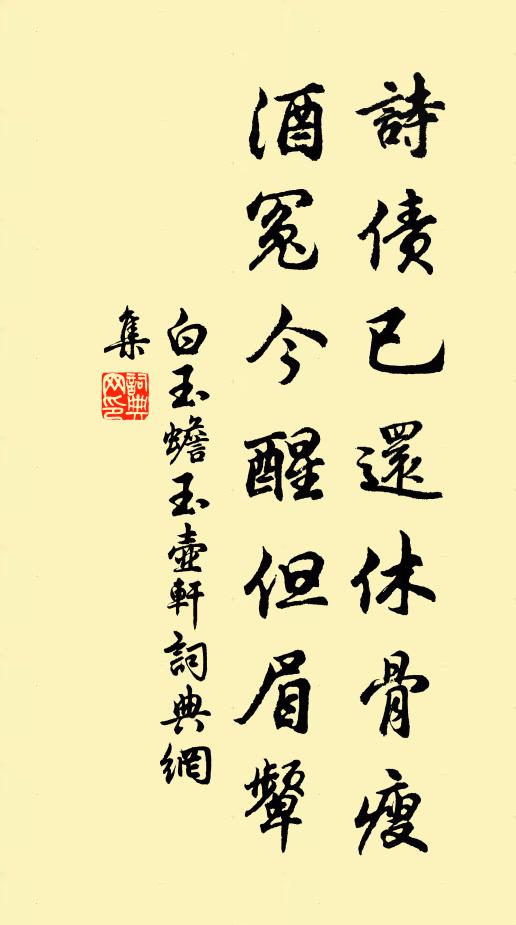 詩債已還休骨瘦
酒冤今醒但眉顰
白玉蟾玉壺軒詞典網
集
詞典
网印